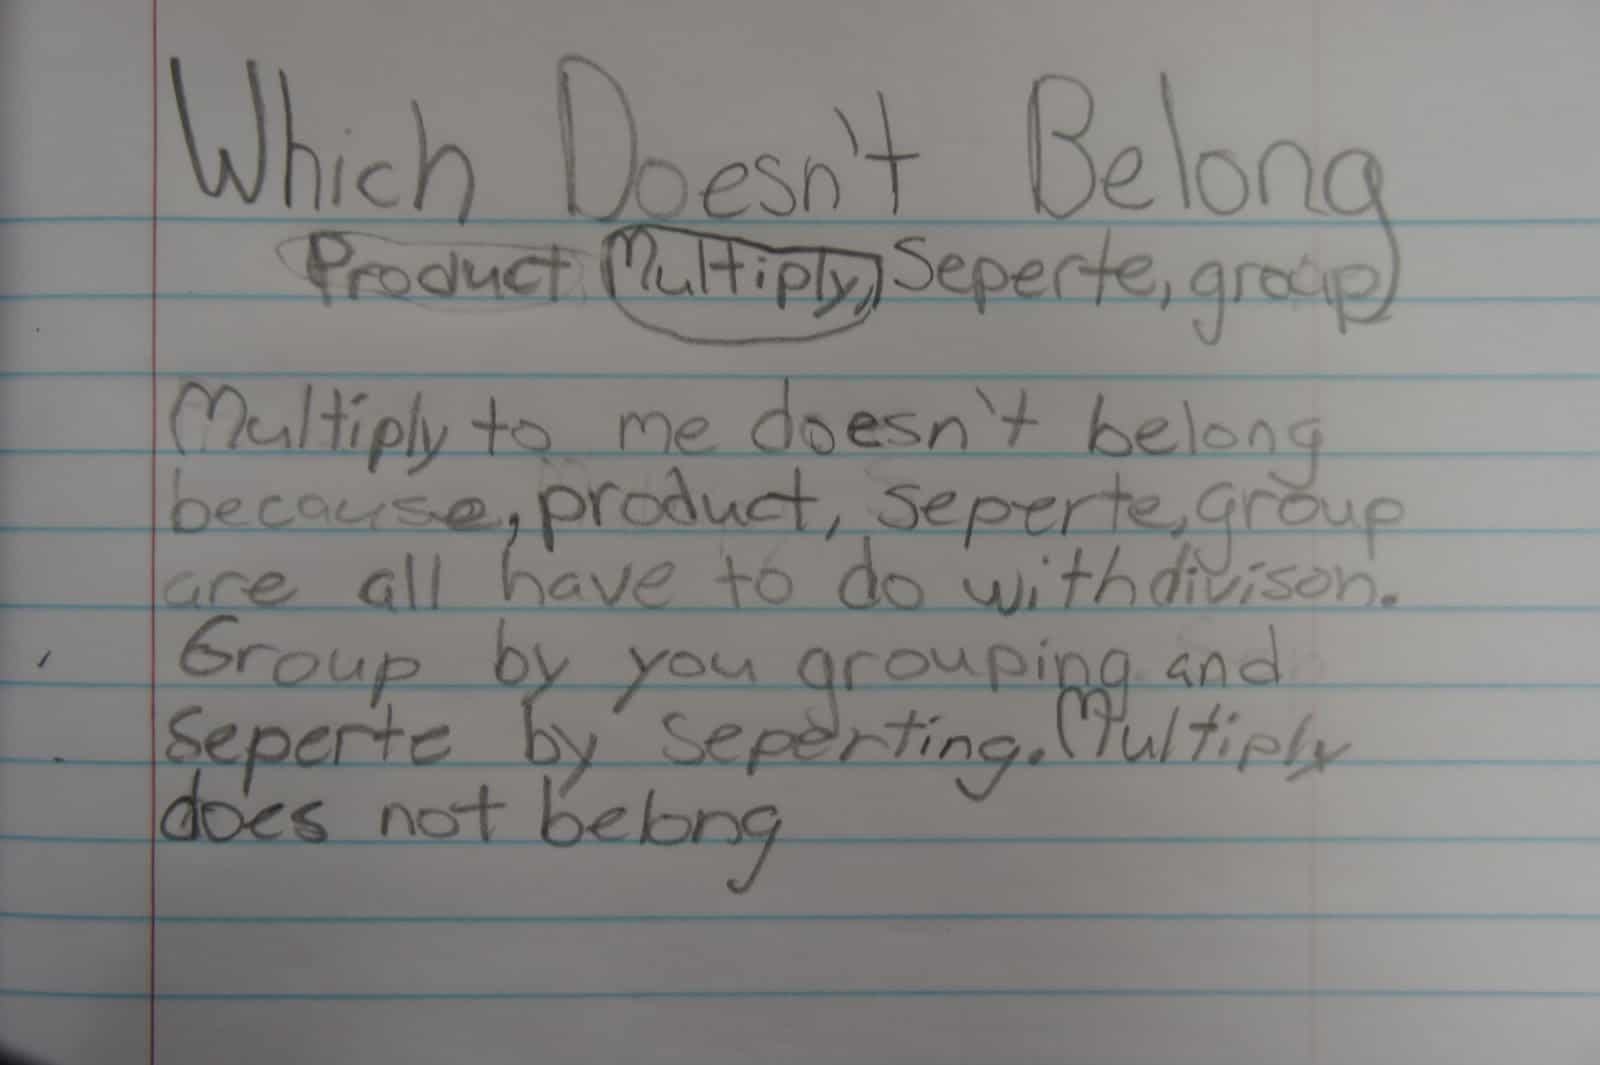 Which Doesn't Belong
Product Multiply, Seperte, group
Multiply to me doesn't belong
because, product, seperte, group
are all have to do with divison.
Group by you grouping and
Seperte by seperting. Multiply
does not belong